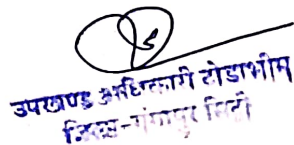 उपखण्ड अधिकारी टोडाभीम
जिला-गंगापुर सिटी